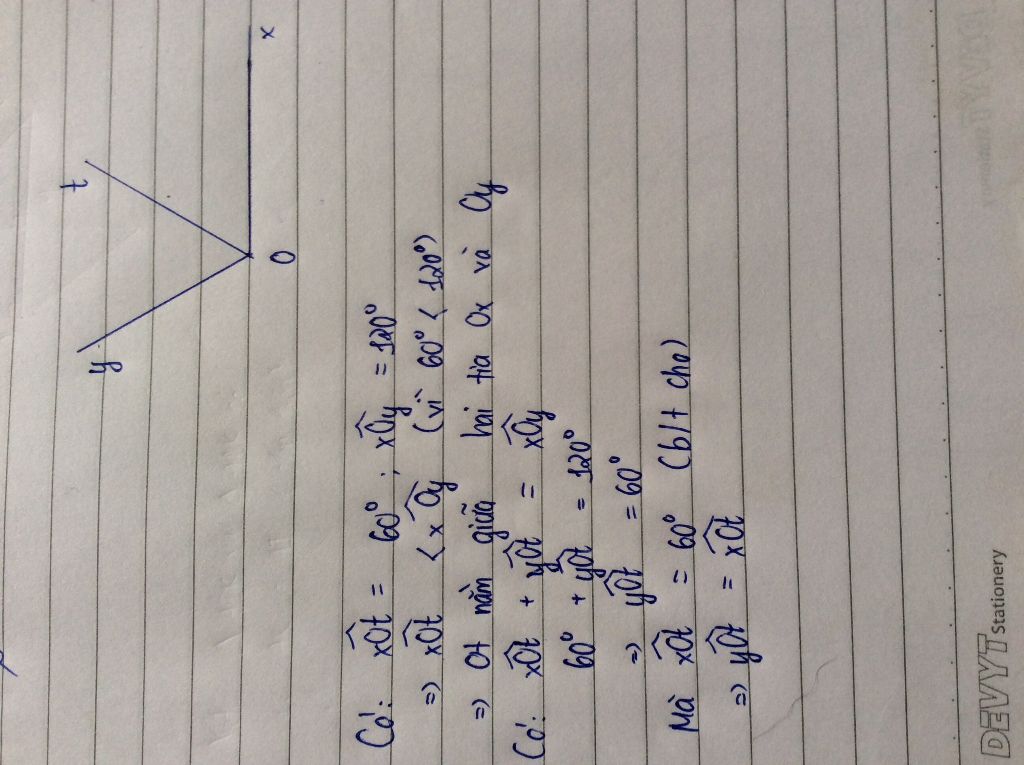 y
t
x
O
Có: xOt = 60° ; xOy = 120°
=> xOt < xOy (vì 60° < 120°)
=> Ot nằm giữa hai tia Ox và Oy
Có: xOt + yOt = xOy
60° + yOt = 120°
=> yOt = 60°
Mà xOt = 60° (blt cho)
=> yOt = xOt
DEVYT Stationery